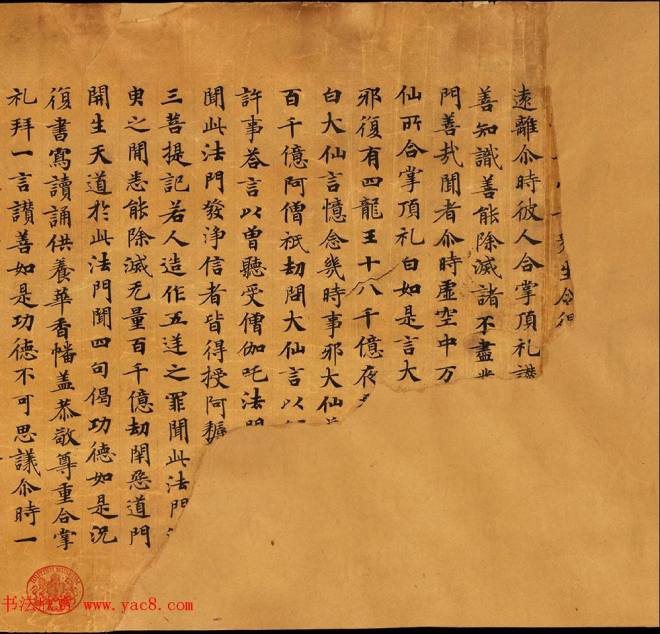 生
遠離尒時彼人合掌頂礼
善知識善能除滅諸不盡
門善哉聞者尒時虛空中万
仙所合掌頂礼白如是言大
邪復有四龍王十八千億夜
白大仙言憶念幾時事邪大仙
百千億阿僧祇劫問大仙言以
許事荅言以曽聽受僧伽吒法門
聞此法門發淨信者皆得授阿耨
三菩提記若人造作五逆之罪聞此法門
臾之間悉能除滅无量百千億劫閇惡道門
開生天道於此法門聞四句偈功德如是況
復書寫讀誦供養華香幡盖恭敬尊重合掌
礼拜一言讃善如是功德不可思議尒時一
书法欣赏 www.yac8.com